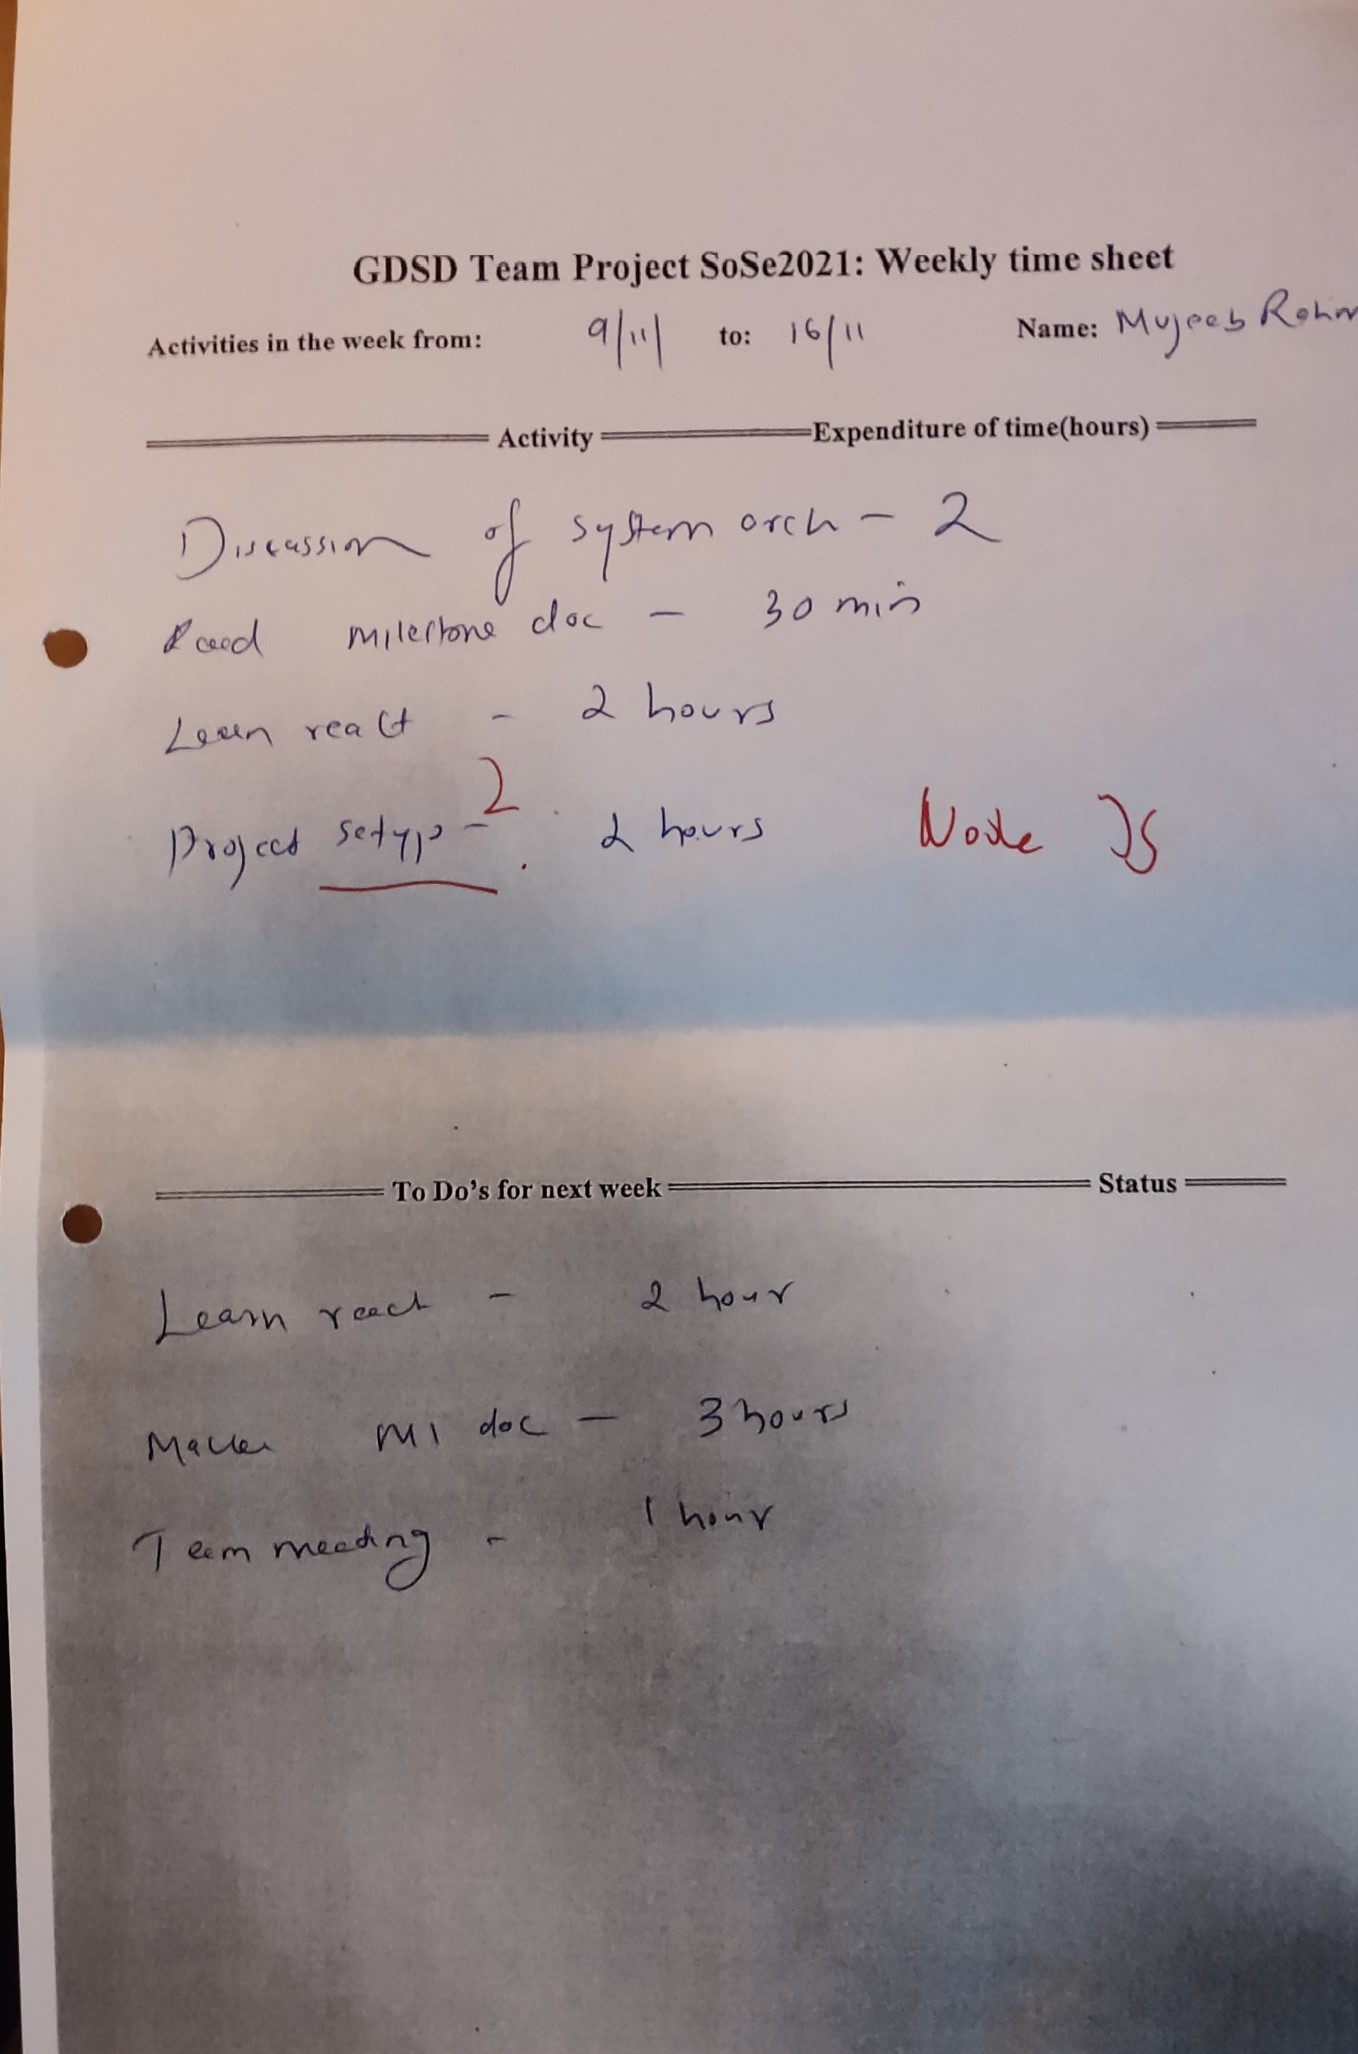 GDSD Team Project SoSe2021: Weekly time sheet
Activities in the week from: 9/11 to: 16/11 Name: Mujeeb
Activity Expenditure of time(hours)
Discussion of system arch - 2
Read milestone doc - 30 min
Learn react - 2 hours
2
Project setup - 2 hours Node JS
To Do's for next week Status
Learn react - 2 hour
M1 doc - 3 hours
Team meeting - 1 hour